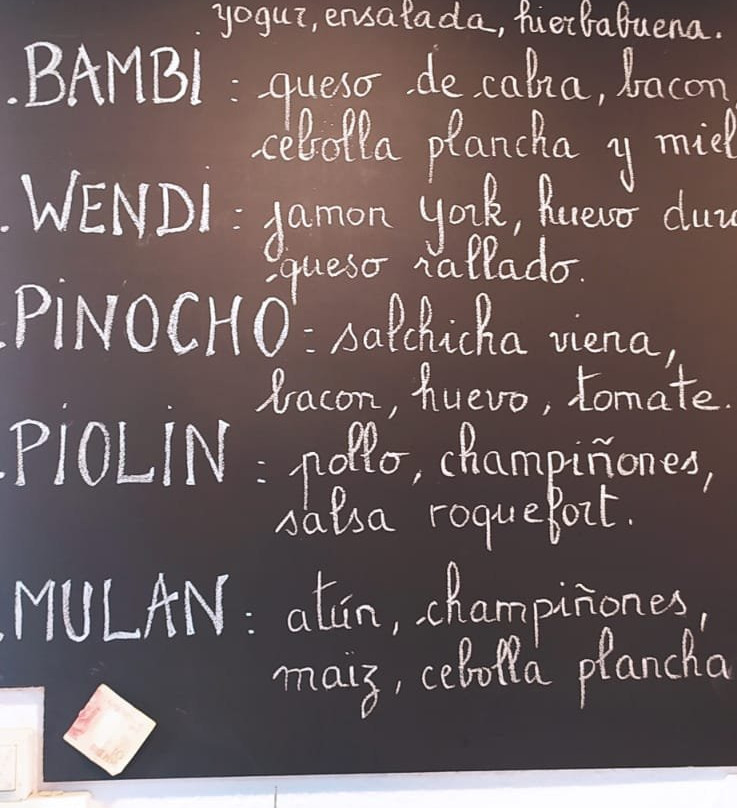 yogur, ensalada, hierbabuena.
. BAMBI : queso de cabra, bacon,
cebolla plancha y miel
. WENDI : jamon york, huevo duro
queso rallado.
. PINOCHO : salchicha viena,
bacon, huevo, tomate.
. PIOLIN : pollo, champiñones,
salsa roquefort.
. MULAN : atún, champiñones,
maïz, cebolla plancha